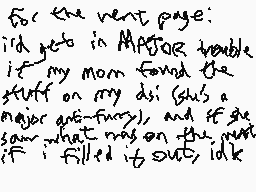 For the next page:
i'd get in MAJOR trouble
if my mom found the
stuff on my dsi (she's a
major anti-furry), and if she
saw what was on the next
if i filled it out, idk